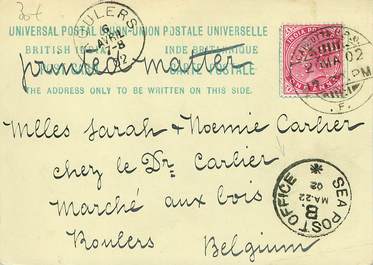 30t
ROULERS
6
AVRIL
7-8
02
UNIVERSAL POSTAL UNION-UNION POSTALE UNIVERSELLE
BRITISH INDIA INDE BRITANNIQUE
printed matter
CARTE POSTALE
THE ADDRESS ONLY TO BE WRITTEN ON THIS SIDE.
Melles Sarah & Noemie Carlier
chez le Dr. Carlier
Marché aux bois
Roulers Belgium
SEA POST OFFICE
B
MA.22
02